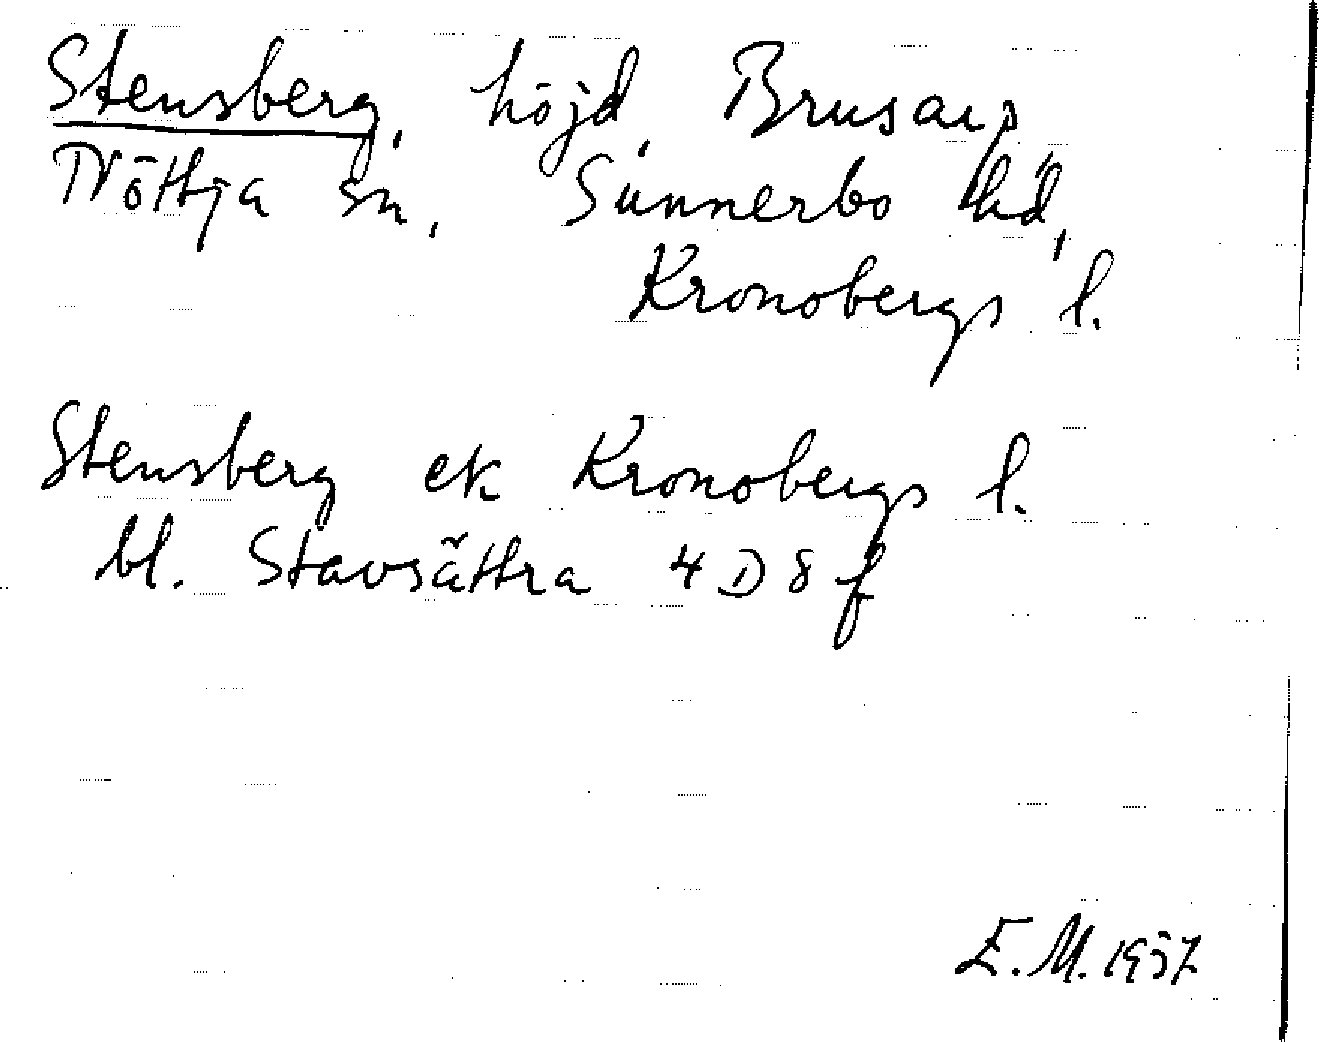 Stensberg, höjd, Brusarp
Nöttja sn, Sunnerbo hd,
Kronobergs l.
Stensberg ek Kronobergs l.
bl. Stavsättra 4 D 8 f
E.M. 1957